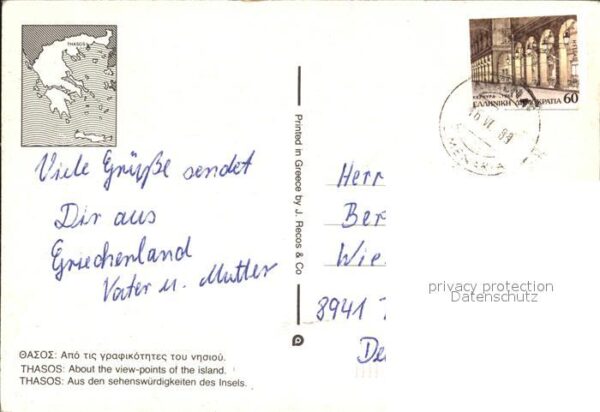 THASOS
Viele Grüße sendet
Dir aus
Griechenland
Vater u. Mutter
ΘΑΣΟΣ: Από τις γραφικότητες του νησιού.
THASOS: About the view-points of the island.
THASOS: Aus den sehenswürdigkeiten des Insels.
Printed in Greece by J. Recos & Co
ΕΛΛΗΝΙΚΗ ΔΗΜΟΚΡΑΤΙΑ 60
VI 89
Herr
Ber
Wie
8941
De
privacy protection
Datenschutz